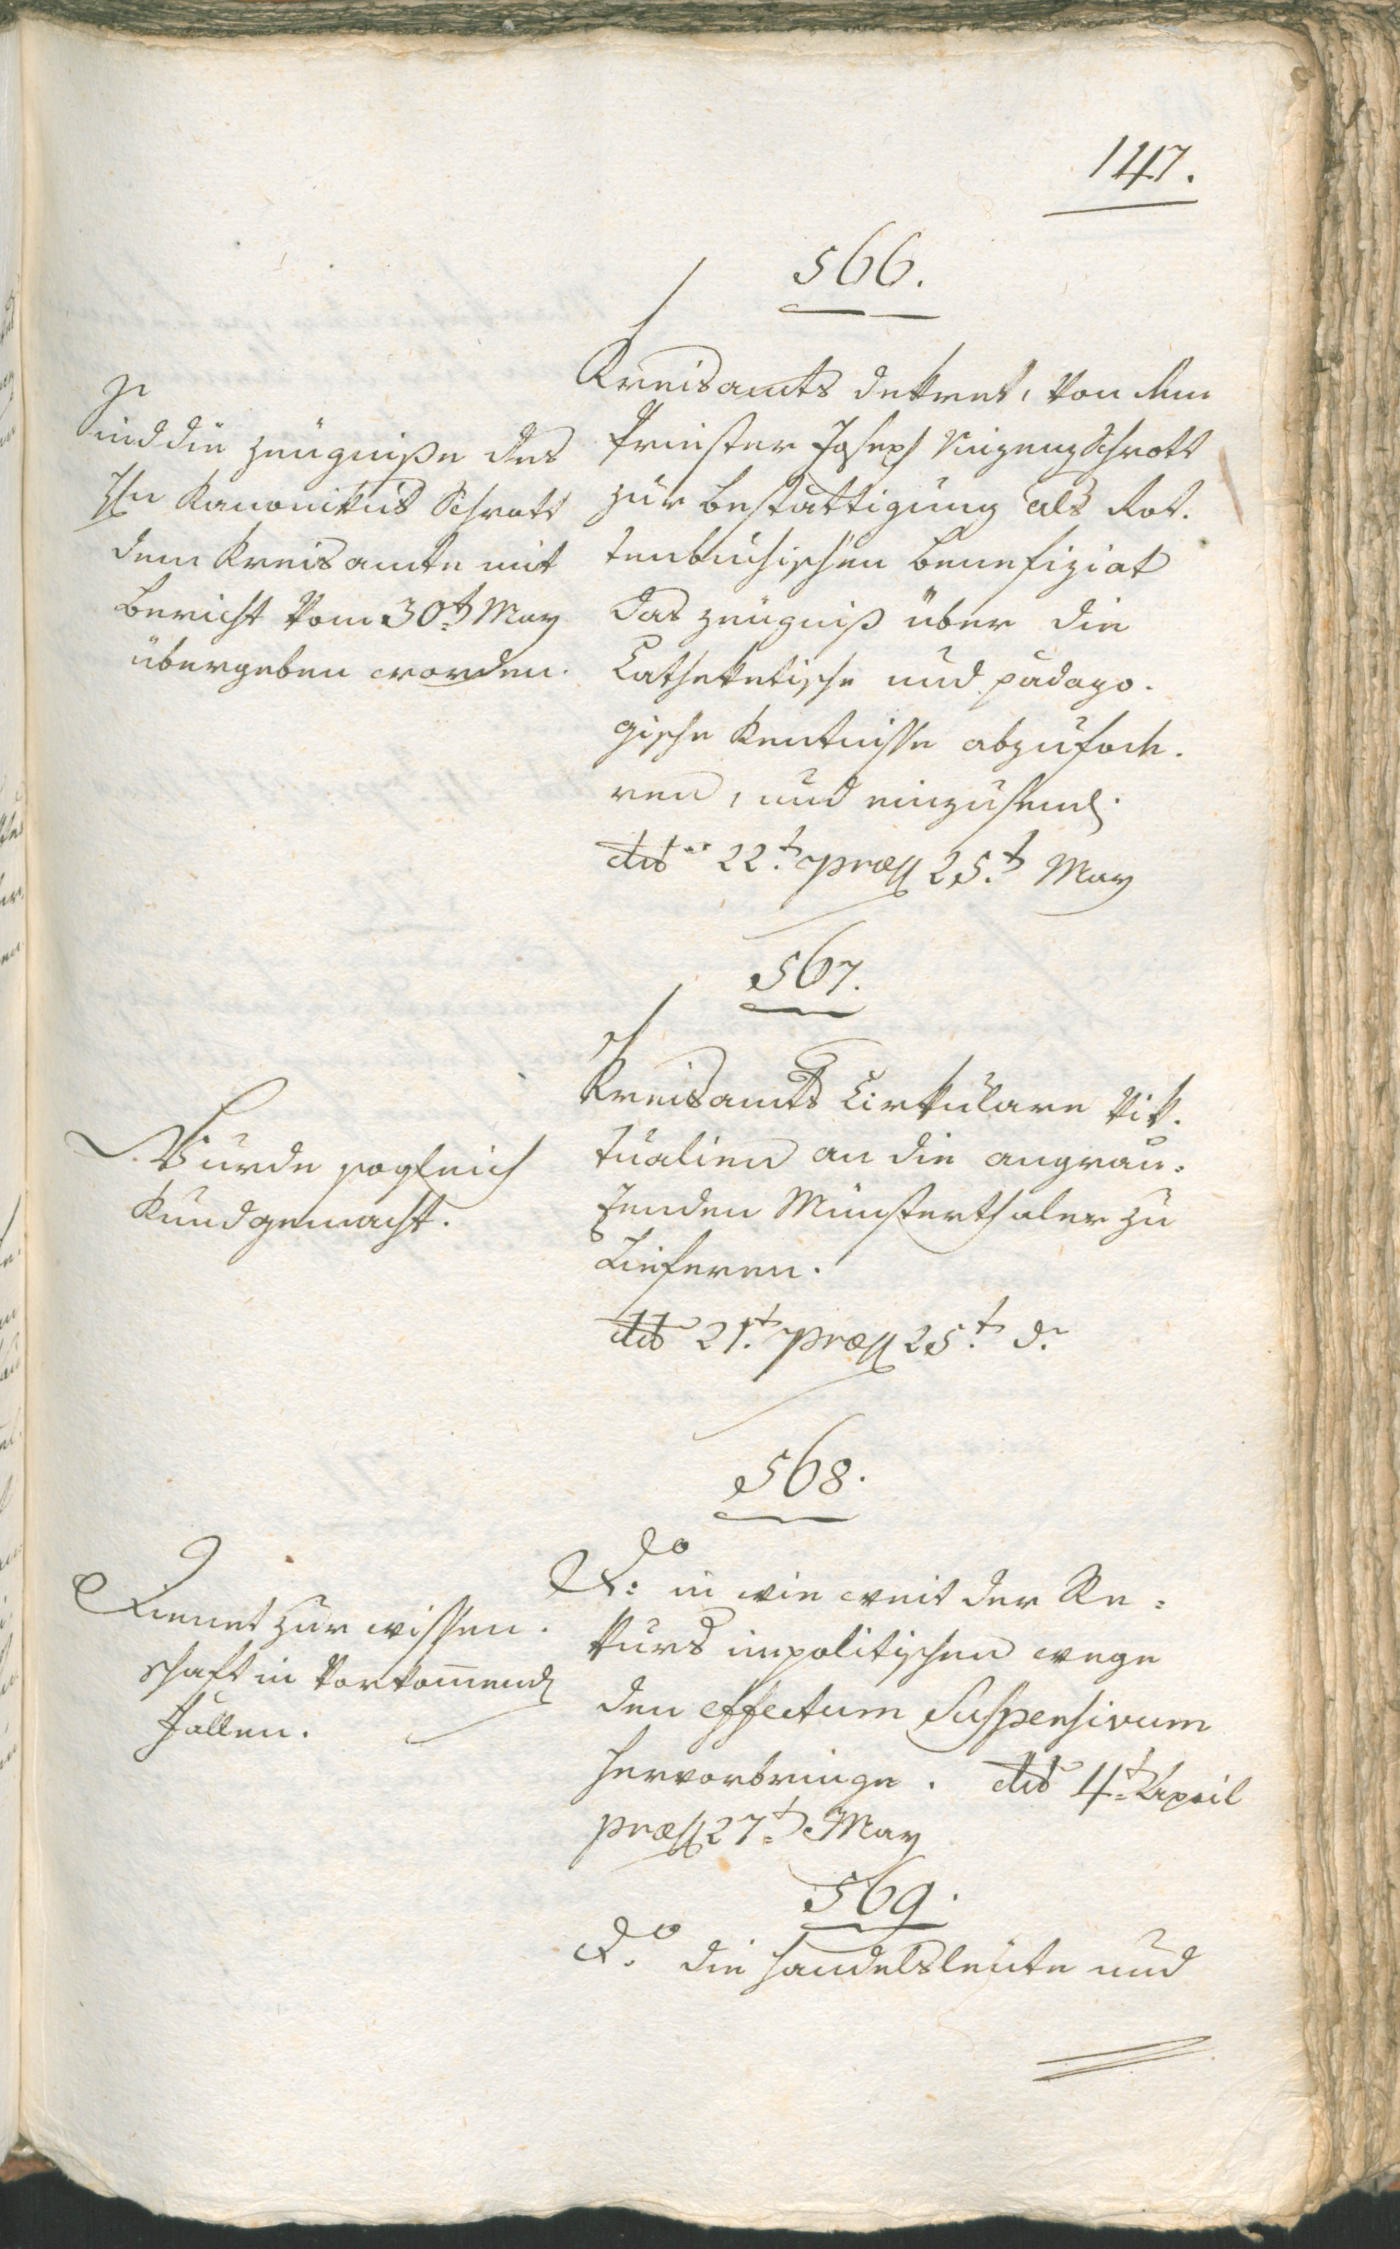 147.
566.
Kreisamts Dekret, von dem
Priester Joseph Vinzenz Schrott
zur Bestättigung als Rot.
tenbuchischen Benefiziat
das Zeugniß über die
Catheketische und pädago.
gische Kentnisse abzufoh.
ren, und einzusend.
dto 22.t præs 25.t May
Sind die Zeugniße des
Hn Kanonikus Schrott
dem Kreisamte mit
Bericht vom 30t May
übergeben worden.
567.
Kreisamts Cirkulare Vik.
tualien an die angrän:
zenden Münsterthaler zu
Lieferen.
dto 21.t præs 25.t d.
Wurde sogleich
Kundgemacht.
568.
do: in wie weit der Re:
kurs in politischen wege
den effectum Suspensivum
hervorbringe. dto 4t April
præs 27t May
Dienet zur wissen.
schaft in vorkommend
Fällen.
569.
do die Handelsleüte und